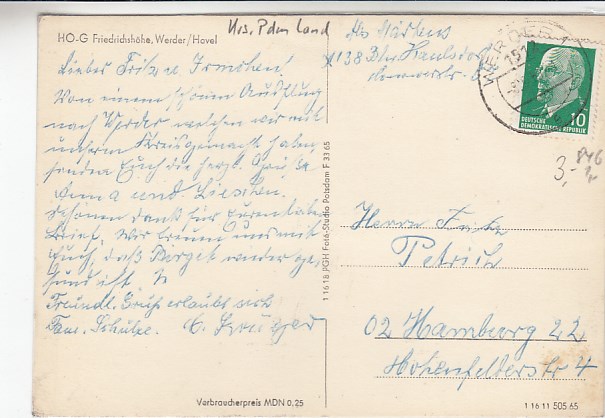 HO-G Friedrichshöhe, Werder/Havel
Krs. Pdm Land
Lieber Fritz u. Irmchen!
Von einem schönen Ausflug
nach Werder welchen wir mit
unserm Kreis gemacht haben
senden Euch die herzl. Grüße
Anna und Lieschen.
Schönen Dank für Euren lieben
Brief, Wir freuen uns mit
Euch, daß Margot wieder ge-
sund ist.
Freundl. Gruß erlaubt sich
Fam. Schulze. E. Krüger
Verbraucherpreis MDN 0,25
1 16 18 PGH Foto-Studio Potsdam F 33 65
1138 Bln. Kaulsdorf
WERDER
10
DEUTSCHE
DEMOKRATISCHE REPUBLIK
846
3,-
Herrn Fritz
Petrich
02 Hamburg 22
Hohenfelderstr 4
1 16 11 505 65